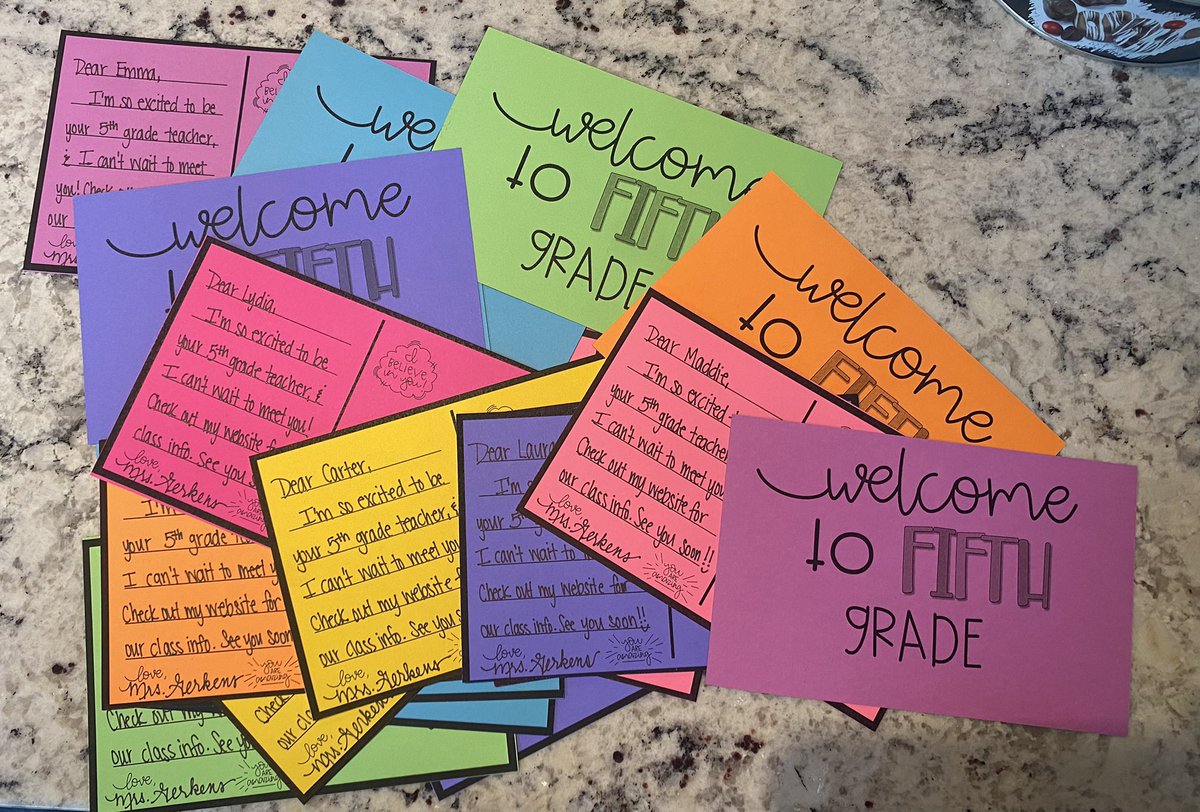 Dear Emma,
I'm so excited to be
your 5th grade teacher,
& I can't wait to meet
you! Check
our
love,
Mrs.
welcome
to
welcome
to FIFTH
GRADE
welcome
FIFTH
welcome
to
FIFTH
Dear Lydia,
I'm so excited to be
your 5th grade teacher, &
I can't wait to meet you!
Check out my website for
class info. See you
love,
Mrs. Gerkens
I
BELIEVE
in you!
Dear Maddie,
I'm so excited
your 5th grade teacher
I can't wait to meet you
Check out my website for
our class info. See you soon!!
love,
Mrs. Gerkens
you
ARE
amazing
welcome
to FIFTH
GRADE
Dear Carter,
I'm so excited to be
your 5th grade teacher, &
I can't wait to meet you
Check out my website
our class info. See you
love,
Mrs. Gerkens
Dear Laura
I'm
your 5th
I can't wait to
Check out my website for
our class info. See you soon!!
love,
Mrs. Gerkens
you
ARE
amazing
I'm
your 5th grade
I can't wait to meet
Check out my website for
our class info. See you soon
love,
Mrs. Gerkens
you
ARE
amazing
Check out my
our class info. See you
love,
Mrs. Gerkens
you
ARE
amazing
Check
our class
love,
Mrs. Gerkens